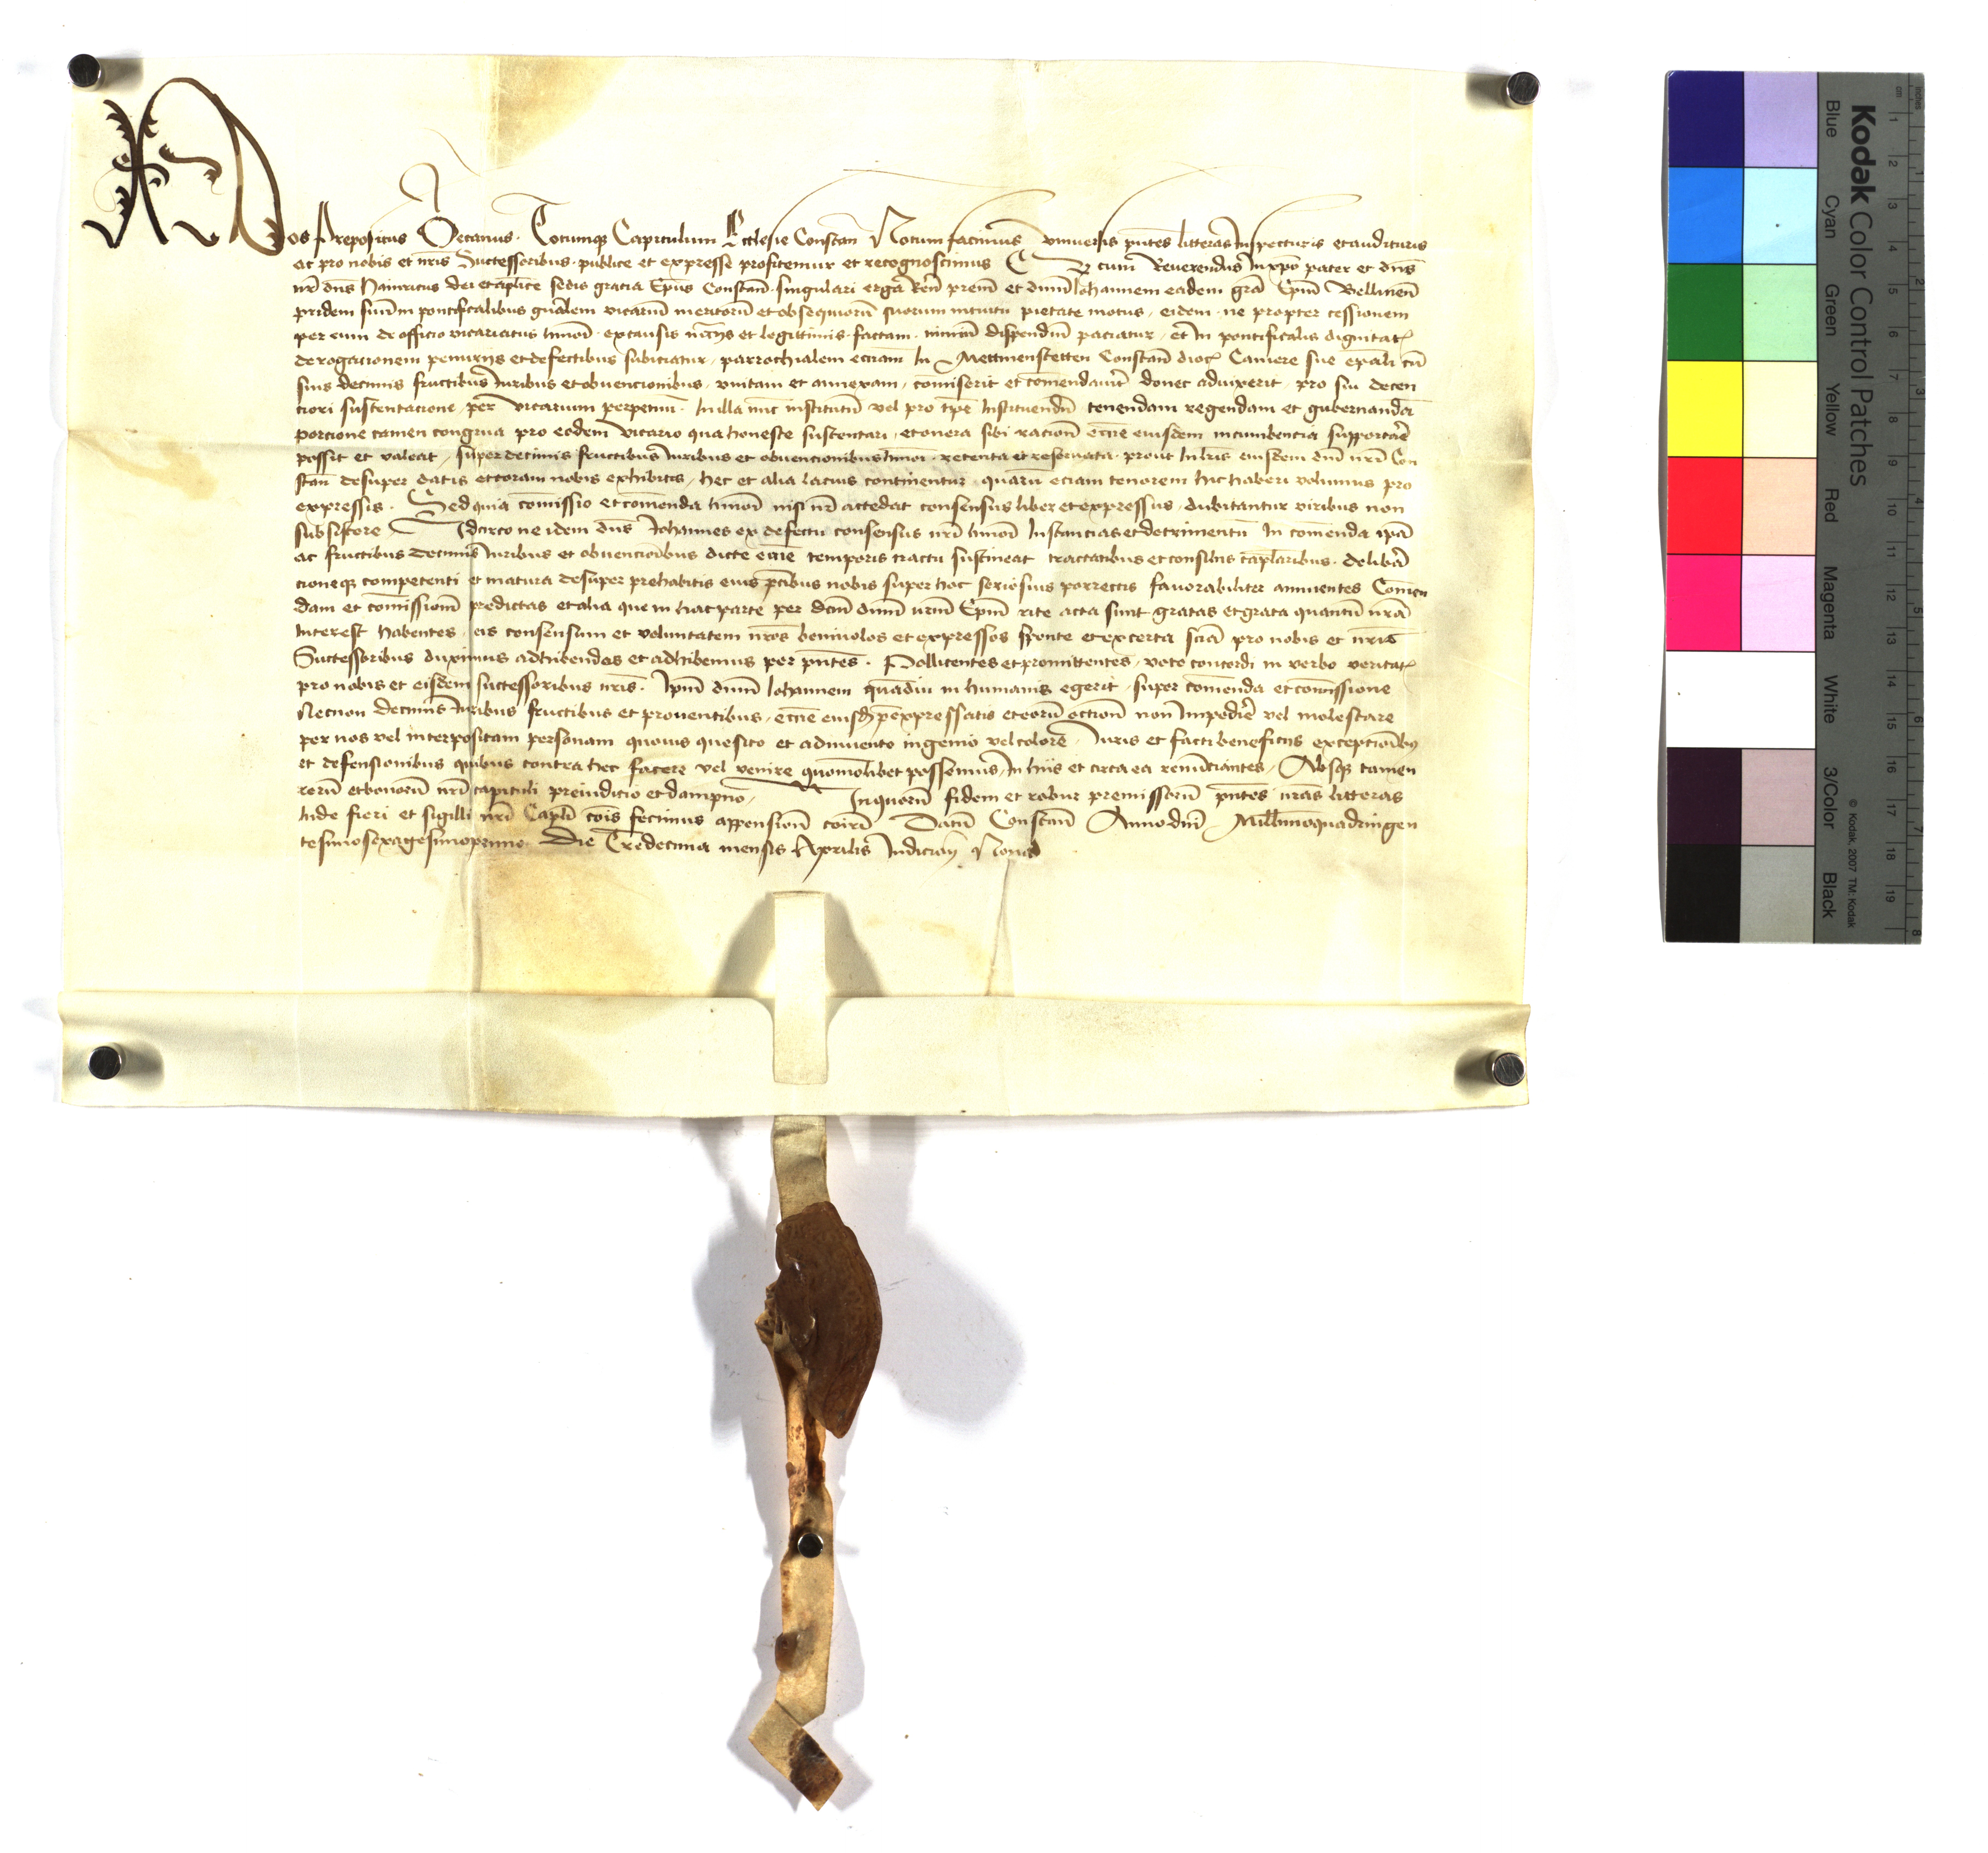 Nos Prepositus Decanus. Totumq3 Capitulum Ecclesie Constan̄ Notum facimus vniuersis pn̄tes litteras Inspecturis et audituris
ac pro nobis et nr̄is Successoribus. publice et expresse profitemur et recognoscimus Q3 cum Reuerendus Inxpō pater et dn̄s
nr̄ dn̄s Hainricus dei et ap̄lice sedis gracia Ep̄us Constan̄. singulari erga Rēn prem̄ et dnm̄ Iohannem eadem grā Ep̄m Bellinen̄
pridem suūm in pontificalibus gn̄alem vicariū meritorū et obsequiorū suorum intuitu pietate motus, eidem. ne propter cessionem
per eum de officio vicariatus hmōi. ex causis n̄cc̄ijs et legittimis. factam. nimiū dispendiū paciatur, et In pontificalis dignitatꝭ
derogacionem penurijs et defectibus subiciatur, parrochialem ecc̄iam In Mettmenstetten Constan̄ diocꝭ Camere sue ep̄ali cū
suis decimis fructibus Iuribus et obuencionibus, vnitam et annexam, cōmiserit et cōmendauit̄ donec aduixerit. pro sui decen
ciori sustentacione, per vicarium perpetuū. In illa nūc institutū vel pro tp̄e Instituendū tenendam regendam et gubernandā
porcione tamen congrua pro eodem vicario qua honeste sustentari, et onera sibi racion̄ ecc̄ie eiusdem incumbencia supportar̄e
possit et valeat, super decimis fructibus Iuribus et obuencionibus hmōi. retenta et reseruata. prout In lr̄is eiusdem dn̄i nr̄i Con
stan̄ desuper datis et coram nobis exhibitis, hec et alia lacius continentur. quarū eciam tenorem hic haberi volumus pro
expressis. Sed quia cōmissio et cōmenda hmōi nisi nr̄ accedat consensus liber et expressus, dubitantur viribus non
subsistere Idcirco ne idem dn̄s Iohannes ex defectu consensus nr̄i hmōi Instancias et detrimentū In cōmenda ip̄a
ac fructibus decimis Iuribus et obuencionibus dicte ecc̄ie temporis tractu sustineat tractatibus et consilijs cap̄laribus. deliberā
cioneq3 competenti et matura desuper prehabitis eius p̄cibus nobis super hoc seriosius porrectis fauorabiliter annuentes Cōmen
dam et cōmissionē predictas et alia que in hac parte per dcm̄ dnm̄ nrm̄ Ep̄m rite acta sunt gratas et grata quantū nr̄a
Interest habentes, eis consensum et voluntatem nr̄os beniuolos et expressos sponte et ex certa sciā pro nobis et nr̄is
Successoribus duximus adhibendos et adhibemus per pn̄tes. Pollicentes et promittentes, voto concordi in verbo veritatꝭ
pro nobis et eisdem successoribus nr̄is. Ip̄m dnm̄ Iohannem quādiu in humanis egerit, super cōmenda et cōmissione
Necnon decimis Iuribus fructibus et prouentibus, ecc̄ie eiusd3 p̄expressatis et eorū occōion̄ non Impedir̄e vel molestare
per nos vel interpositam personam quouis quesito et adinuento ingenio vel colore. Iuris et facti beneficijs exceptionib3
et defensionibus quibus contra hec facere vel venire quomōlibet possemus, In hiis et circa ea renūciantes, Absq3 tamen
rerū et bonorū nr̄i capituli preiudicio et dampno, In quorū fidem et robur premissorū pn̄tes nr̄as litteras
Inde fieri et sigilli nr̄i Cap̄li cōis fecimus appension̄ cōirī Datū Constan̄ Anno dn̄i Mill̄mo quadringen
tesimo sexagesimo primo. Die Tredecima mensis Aprilis Indicion̄ Nona
Kodak Color Control Patches
Blue Cyan Green Yellow Red Magenta White 3/Color Black
© Kodak, 2007 TM: Kodak
inches 1 2 3 4 5 6 7 8
cm 1 2 3 4 5 6 7 8 9 10 11 12 13 14 15 16 17 18 19